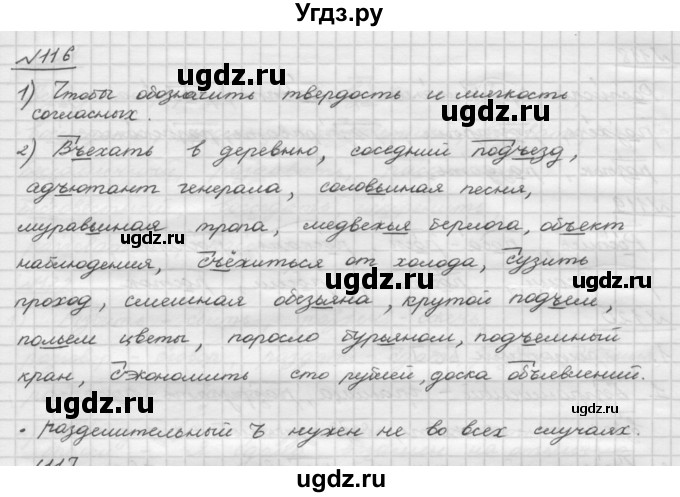 Угдз.ру
№116
1) Чтобы обозначить твердость и мягкость
согласных.
2) Въехать в деревню, соседний подъезд,
адъютант генерала, соловьиная песня,
муравьиная тропа, медвежья берлога, объект
наблюдения, съёжиться от холода, сузить
проход, смешная обезьяна, крутой подъем,
польем цветы, поросло бурьяном, подъемный
кран, сэкономить сто рублей, доска объявлений.
• разделительный Ъ нужен не во всех случаях.
117
ugdz.ru
ugdz.ru
ugdz.ru
ugdz.ru
ugdz.ru
ugdz.ru
ugdz.ru
ugdz.ru
ugdz.ru
ugdz.ru
ugdz.ru